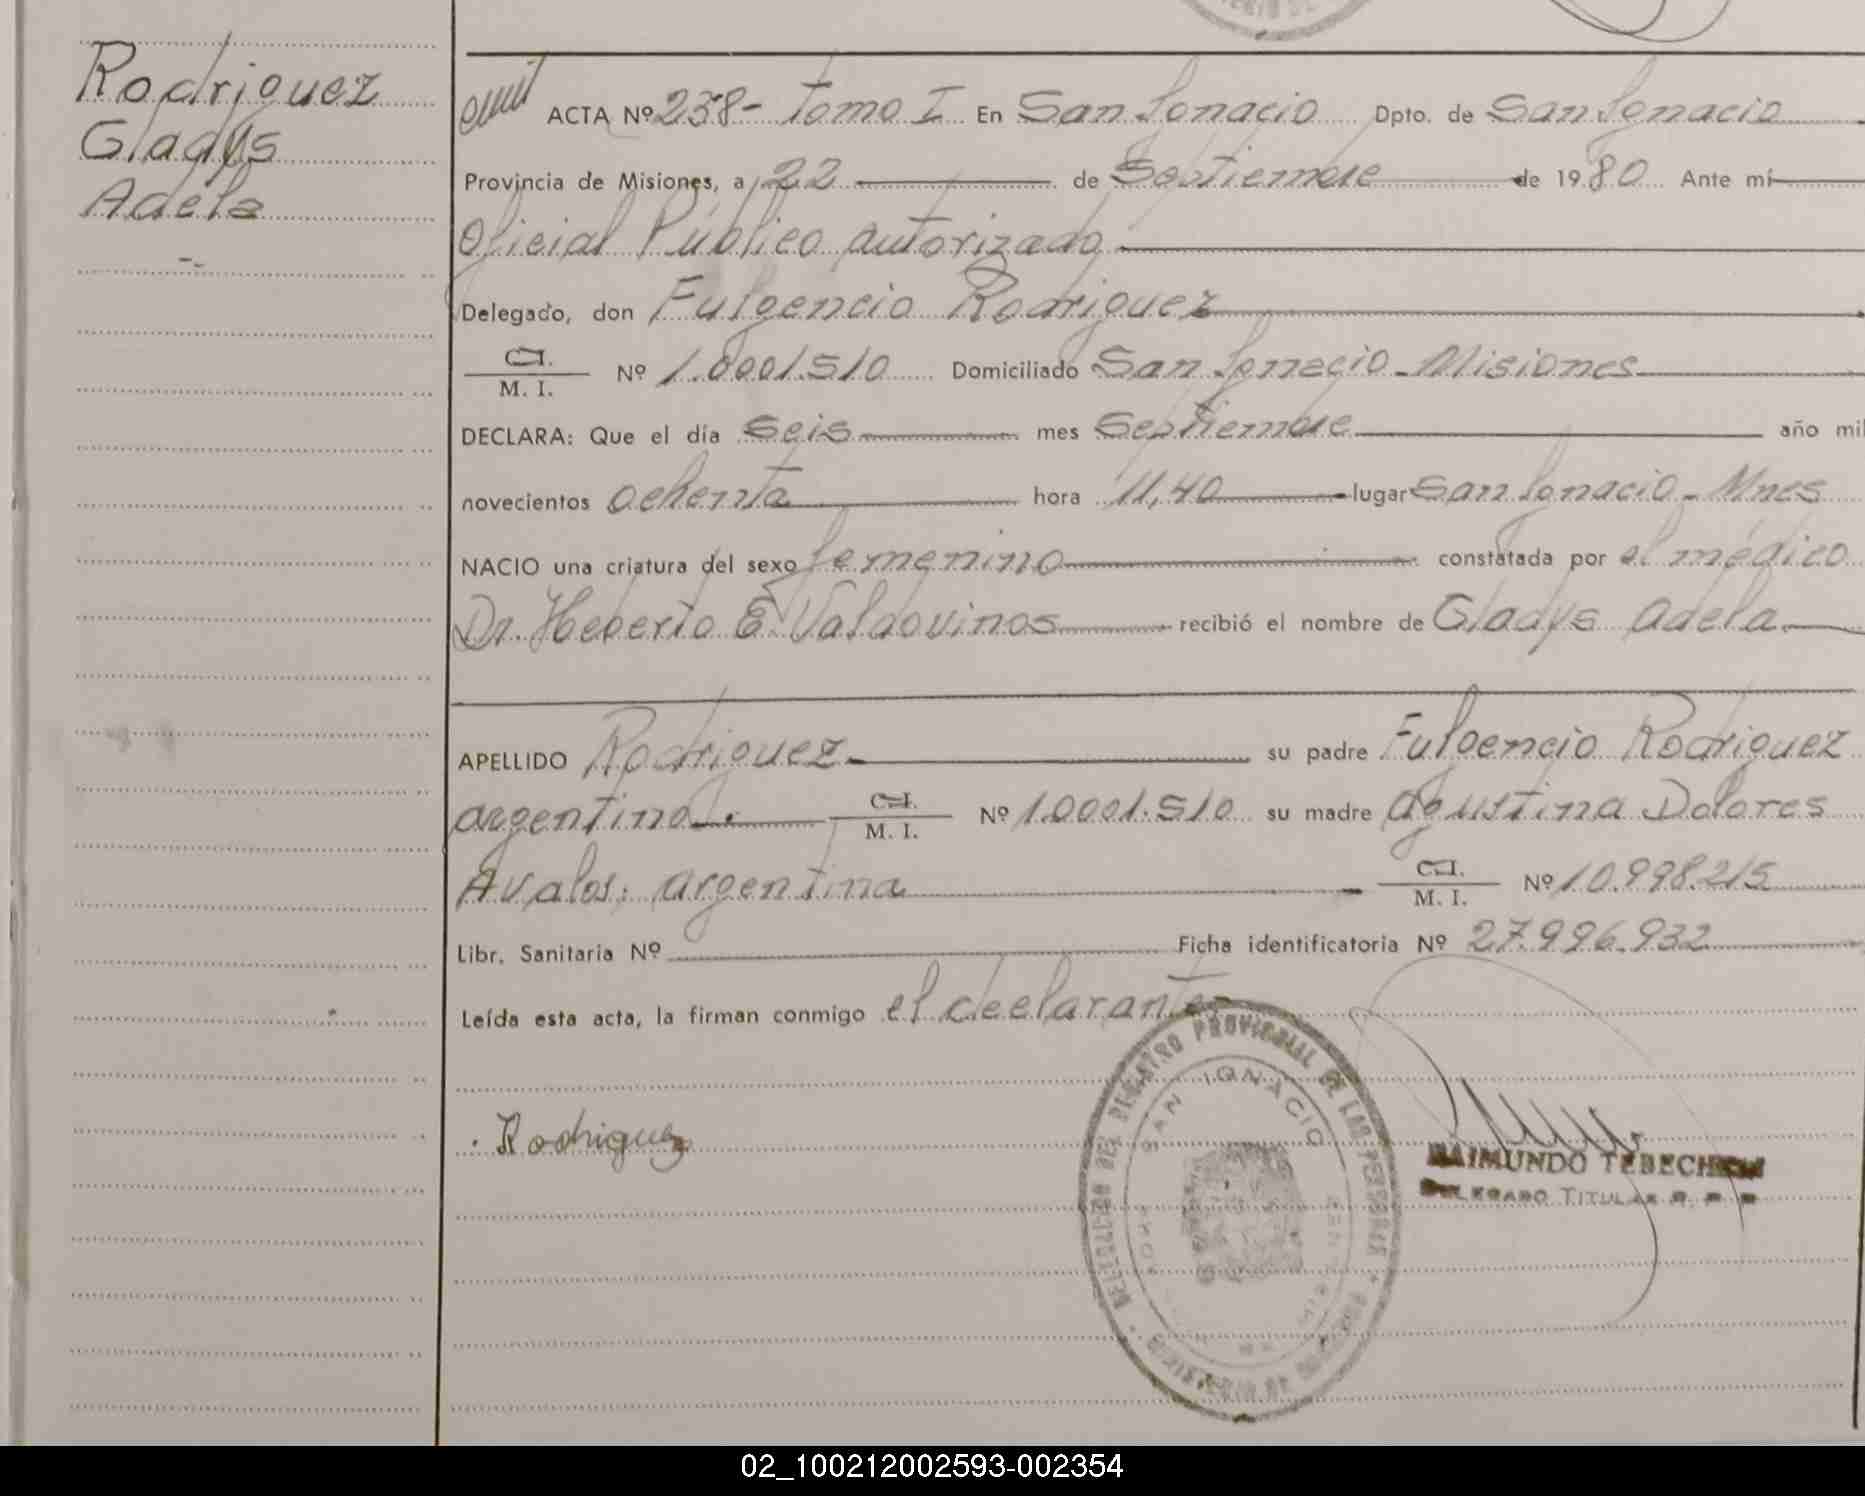 Rodriguez
Gladys
Adela
ACTA Nº 238- Tomo I En San Ignacio Dpto. de San Ignacio
Provincia de Misiones, a 22 de Septiembre de 1980 Ante mí
Oficial Público autorizado
Delegado, don Fulgencio Rodriguez
C.I.
M. I. Nº 1.0001.510 Domiciliado San Ignacio - Misiones
DECLARA: Que el día Seis mes Septiembre año mil
novecientos ochenta hora 11,40 lugar San Ignacio - Mnes
NACIO una criatura del sexo femenino constatada por el médico
Dr. Heberto E. Valdovinos recibió el nombre de Gladys Adela
APELLIDO Rodriguez su padre Fulgencio Rodriguez
argentino. C.I.
M. I. Nº 10001.510 su madre Agustina Dolores
Avalos; argentina C.I.
M. I. Nº 10.998.215
Libr. Sanitaria Nº Ficha identificatoria Nº 27.996.932
Leída esta acta, la firman conmigo el declarante
Rodriguez
REGISTRO PROVINCIAL DE LAS PERSONAS
SAN IGNACIO
RAIMUNDO
DELEGADO TITULAR R. P. P.
02_100212002593-002354